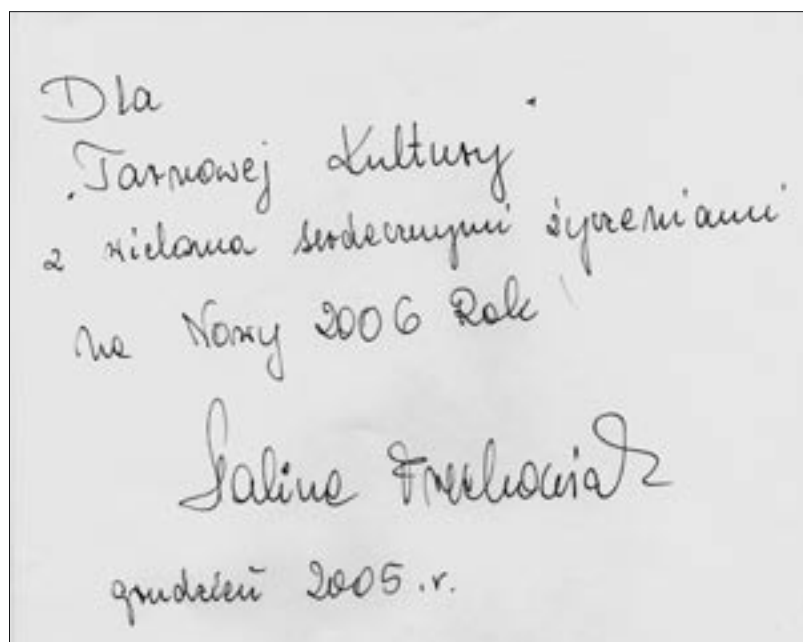 Dla
"Tarnowej Kultury"
z wieloma serdecznymi życzeniami
na Nowy 2006 Rok!
Halina
grudzień 2005.r.